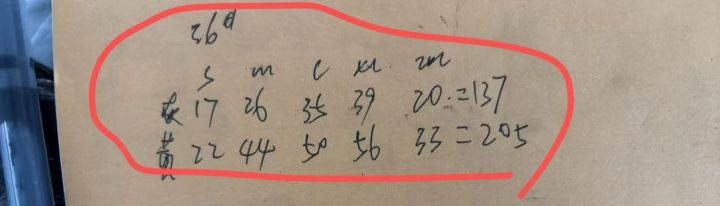 36#
S M L XL 2XL
灰 17 26 35 39 20 = 137
黄 22 44 50 56 33 = 205